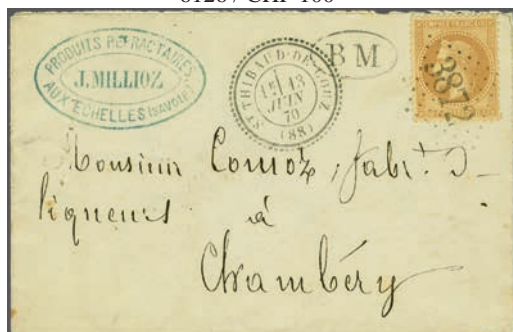 PRODUITS RÉFRACTAIRES
J. MILLIOZ
AUX ECHELLES (SAVOIE)
ST THIBAUD-DE-COUZ
1E 13
JUIN
70
(88)
B M
EMPIRE FRANÇAIS
3872
Monsieur Comoz, fabt. D-
liqueurs
à
Chambéry